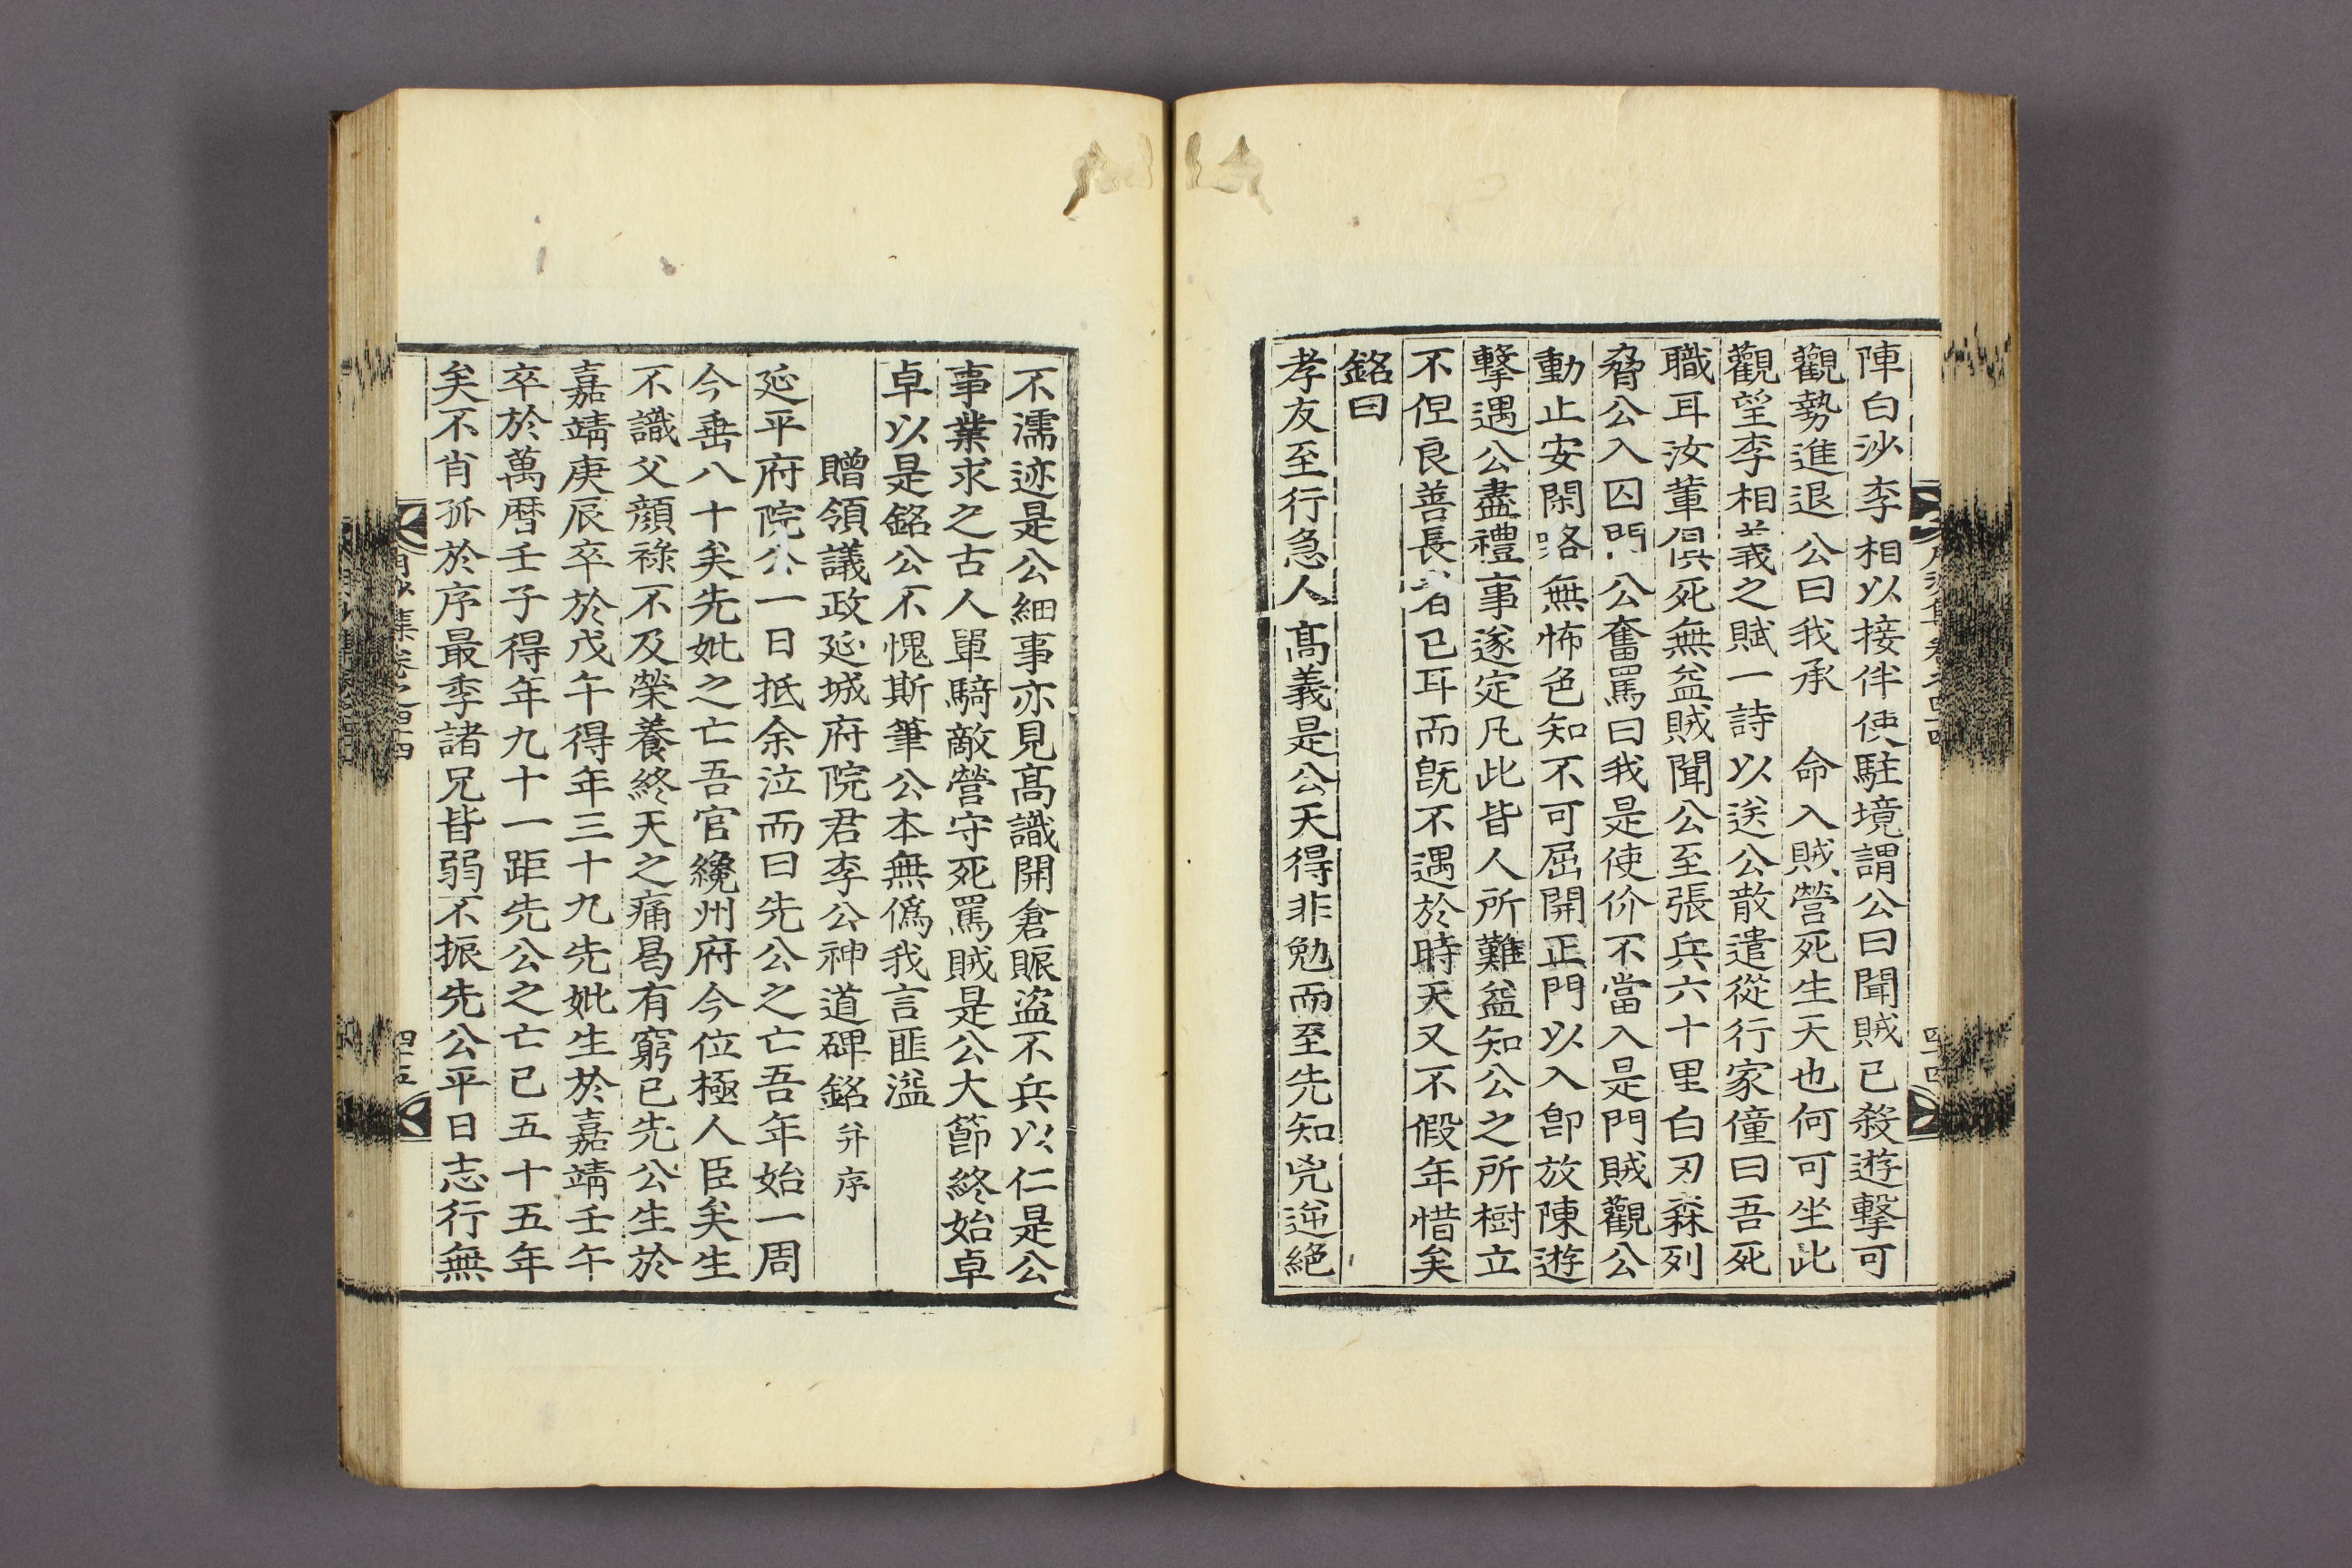 陣白沙李相以接伴使駐境謂公曰聞賊已殺遊擊可
觀勢進退公曰我承　命入賊營死生天也何可坐此
觀望李相義之賦一詩以送公散遣從行家僮曰吾死
職耳汝輩俱死無益賊聞公至張兵六十里白刃森列
脅公入囚門公奮罵曰我是使价不當入是門賊觀公
動止安閑略無怖色知不可屈開正門以入卽放陳遊
擊遇公盡禮事遂定凡此皆人所難益知公之所樹立
不但良善長者已耳而旣不遇於時天又不假年惜矣
銘曰
孝友至行急人高義是公天得非勉而至先知兇逆絕
不濡迹是公細事亦見高識開倉賑盜不兵以仁是公
事業求之古人單騎敵營守死罵賊是公大節終始卓
卓以是銘公不愧斯筆公本無僞我言匪溢
贈領議政延城府院君李公神道碑銘 幷序
延平府院公一日抵余泣而曰先公之亡吾年始一周
今垂八十矣先妣之亡吾官纔州府今位極人臣矣生
不識父顔祿不及榮養終天之痛曷有窮已先公生於
嘉靖庚辰卒於戊午得年三十九先妣生於嘉靖壬午
卒於萬曆壬子得年九十一距先公之亡已五十五年
矣不肖孤於序最季諸兄皆弱不振先公平日志行無
集卷之四十四
四十五